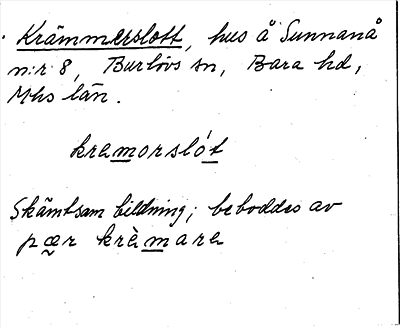 Krämmerslott, hus å Sunnanå
n:r 8, Burlövs sn, Bara hd,
Mhs län.
kremorslót
Skämtsam bildning; beboddes av
pær krèmare